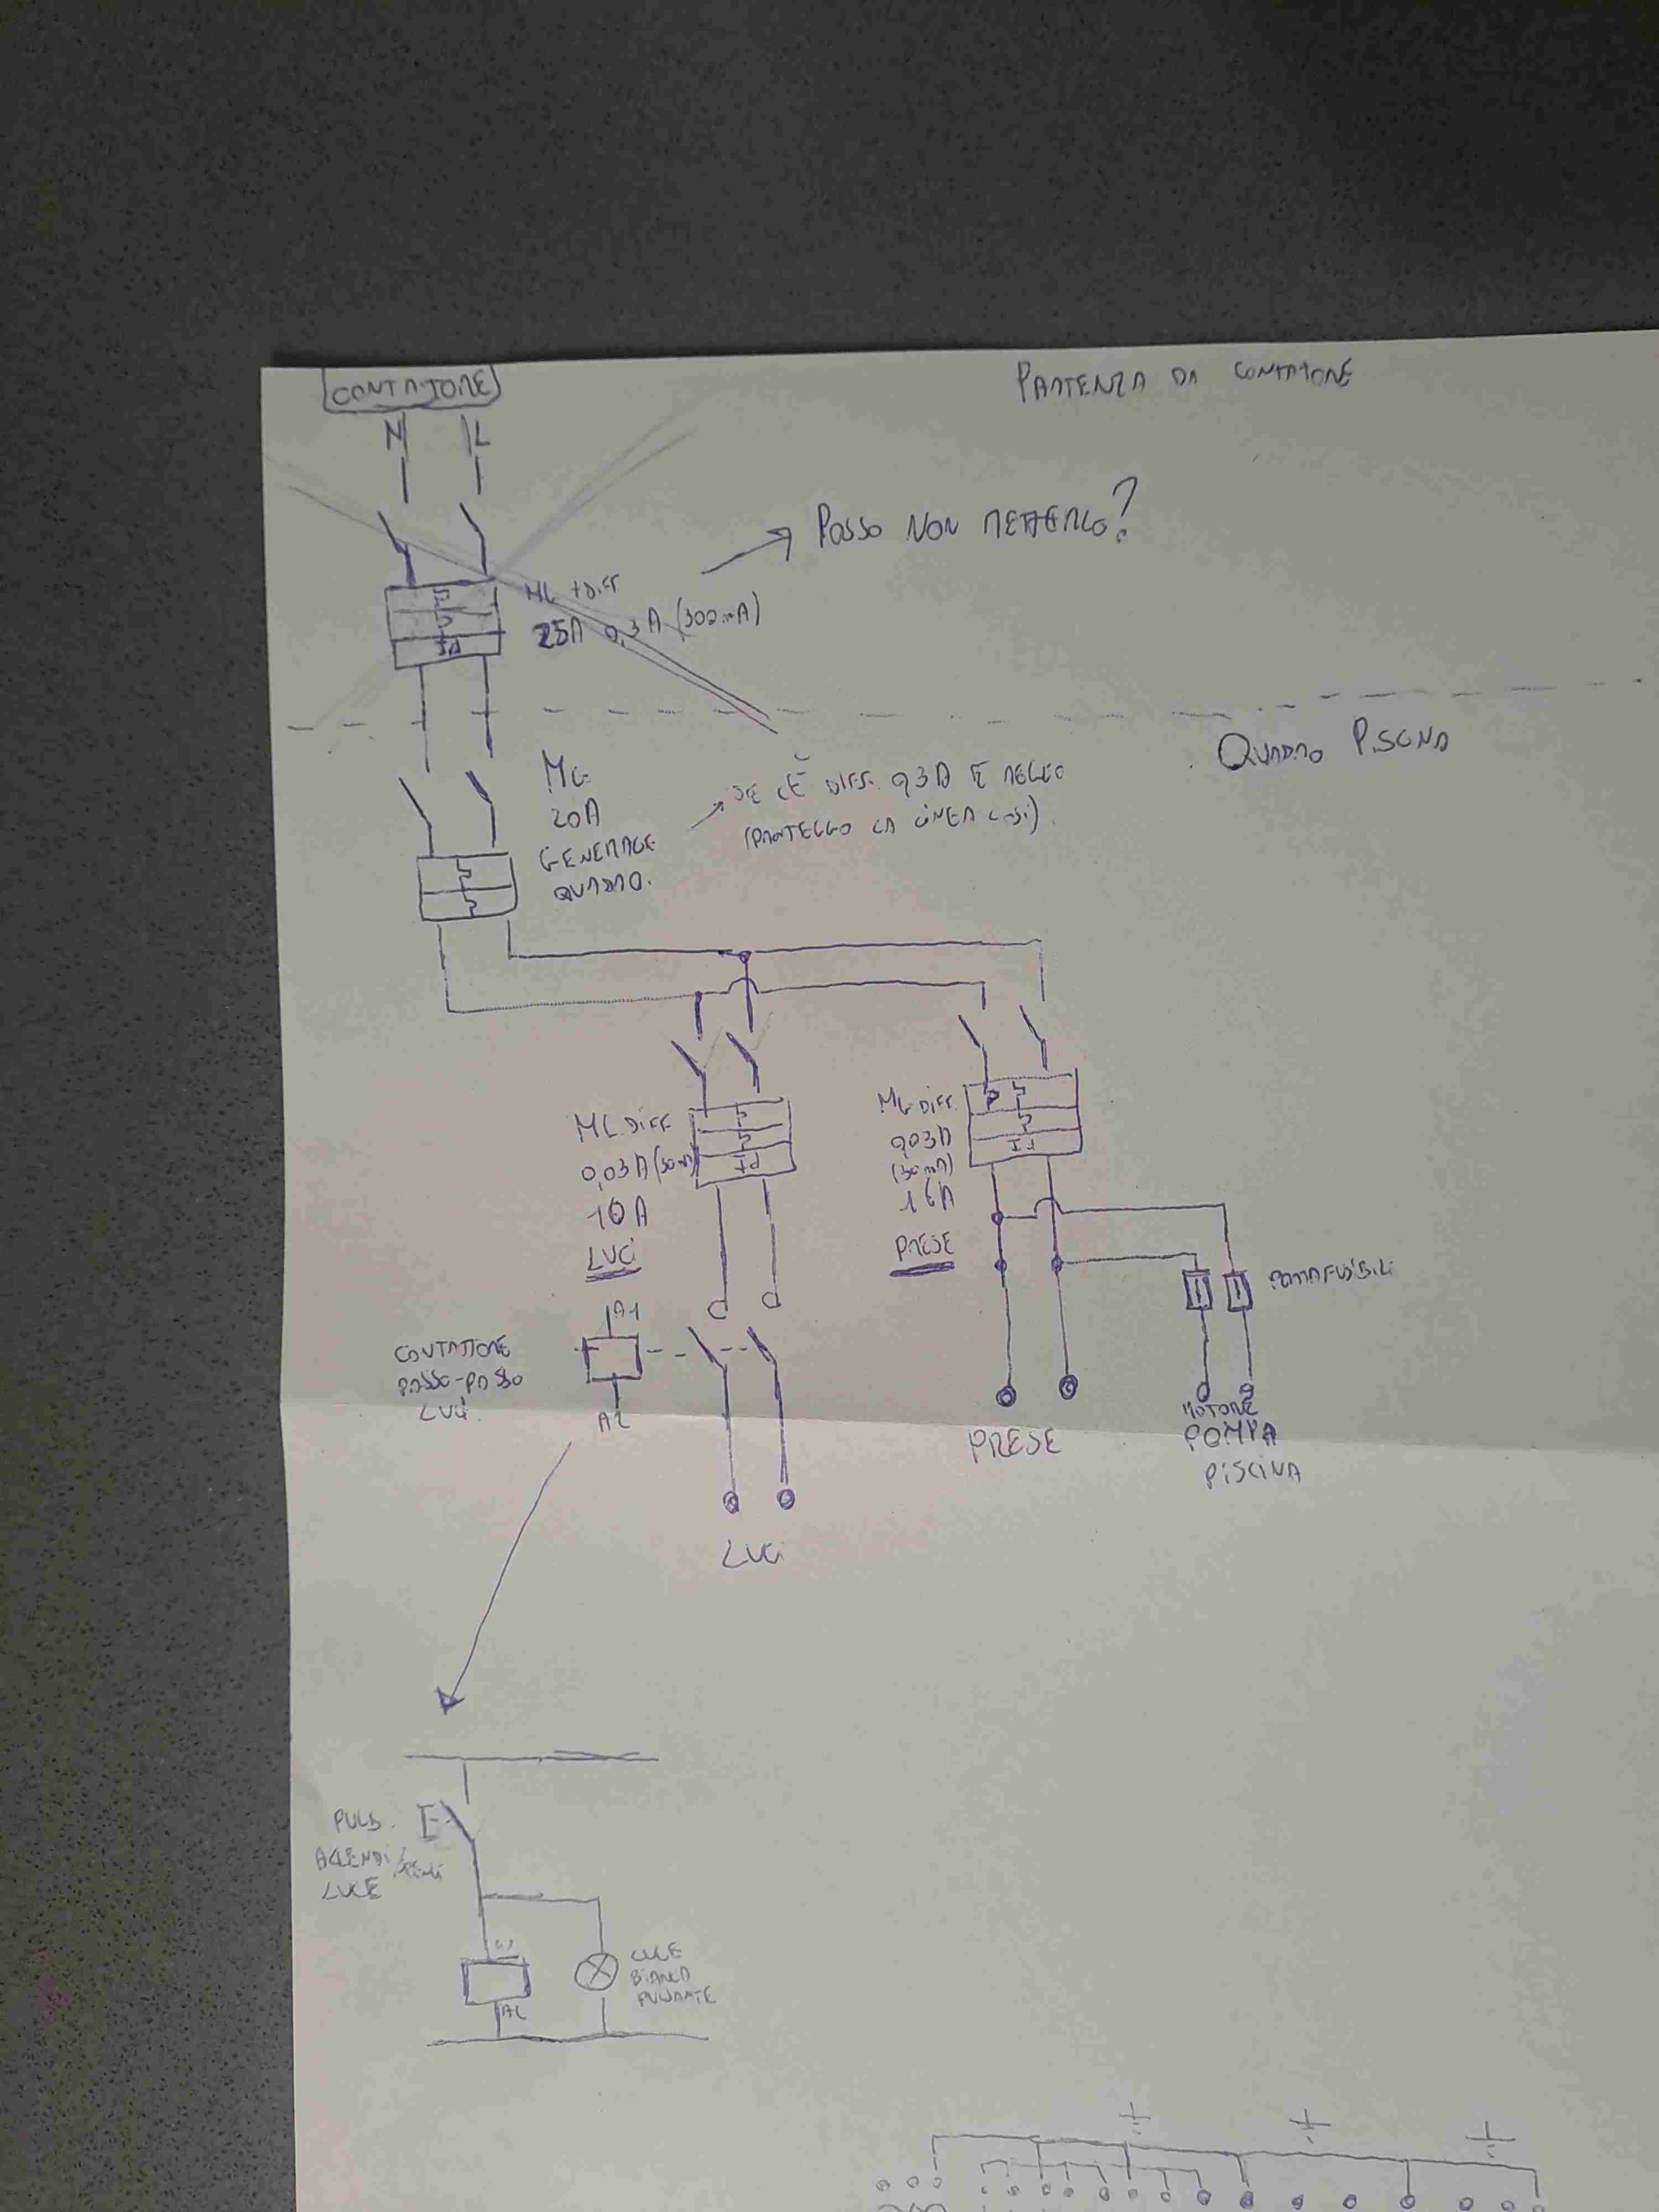 CONTATORE
PARTENZA DA CONTATORE
N L
POSSO NON METTERLO?
MG + DIFF
25A 0,3A (300mA)
QUADRO PISCINA
MG
20A
GENERALE
QUADRO.
SE C'È DIFF. 0,3A È MEGLIO
(PROTEGGO LA LINEA COSÌ).
MG DIFF.
0,03A (30mA)
10A
LUCI
MG DIFF.
0,03A
(30mA)
16A
PRESE
PORTAFUSIBILI
CONTATTORE
PASSO-PASSO
LUCI.
A1
A2
PRESE
MOTORE
POMPA
PISCINA
LUCI
PULS.
ACCENDI/SPEGNI
LUCE
A1
A2
LUCE
BIANCA
PULSANTE